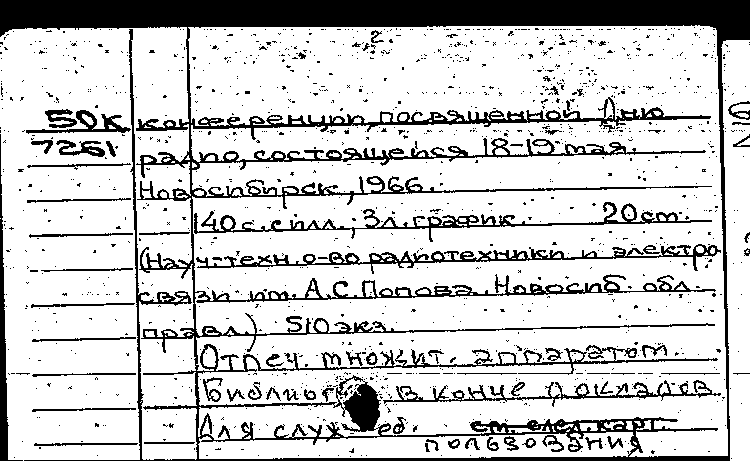 2.
50К конференции, посвященной Дню
7261 радио, состоящейся 18-19 мая.
Новосибирск, 1966.
140 с. с илл.; 3 л. график. 20 cm.
(Науч.-техн. о-во радиотехники и электро
связи им. А.С. Попова. Новосиб. обл.
правл.) 510 экз.
Отпеч. множит. аппаратом.
Библиогр в конце докладов
Для служеб. см. след. карт.
пользования.